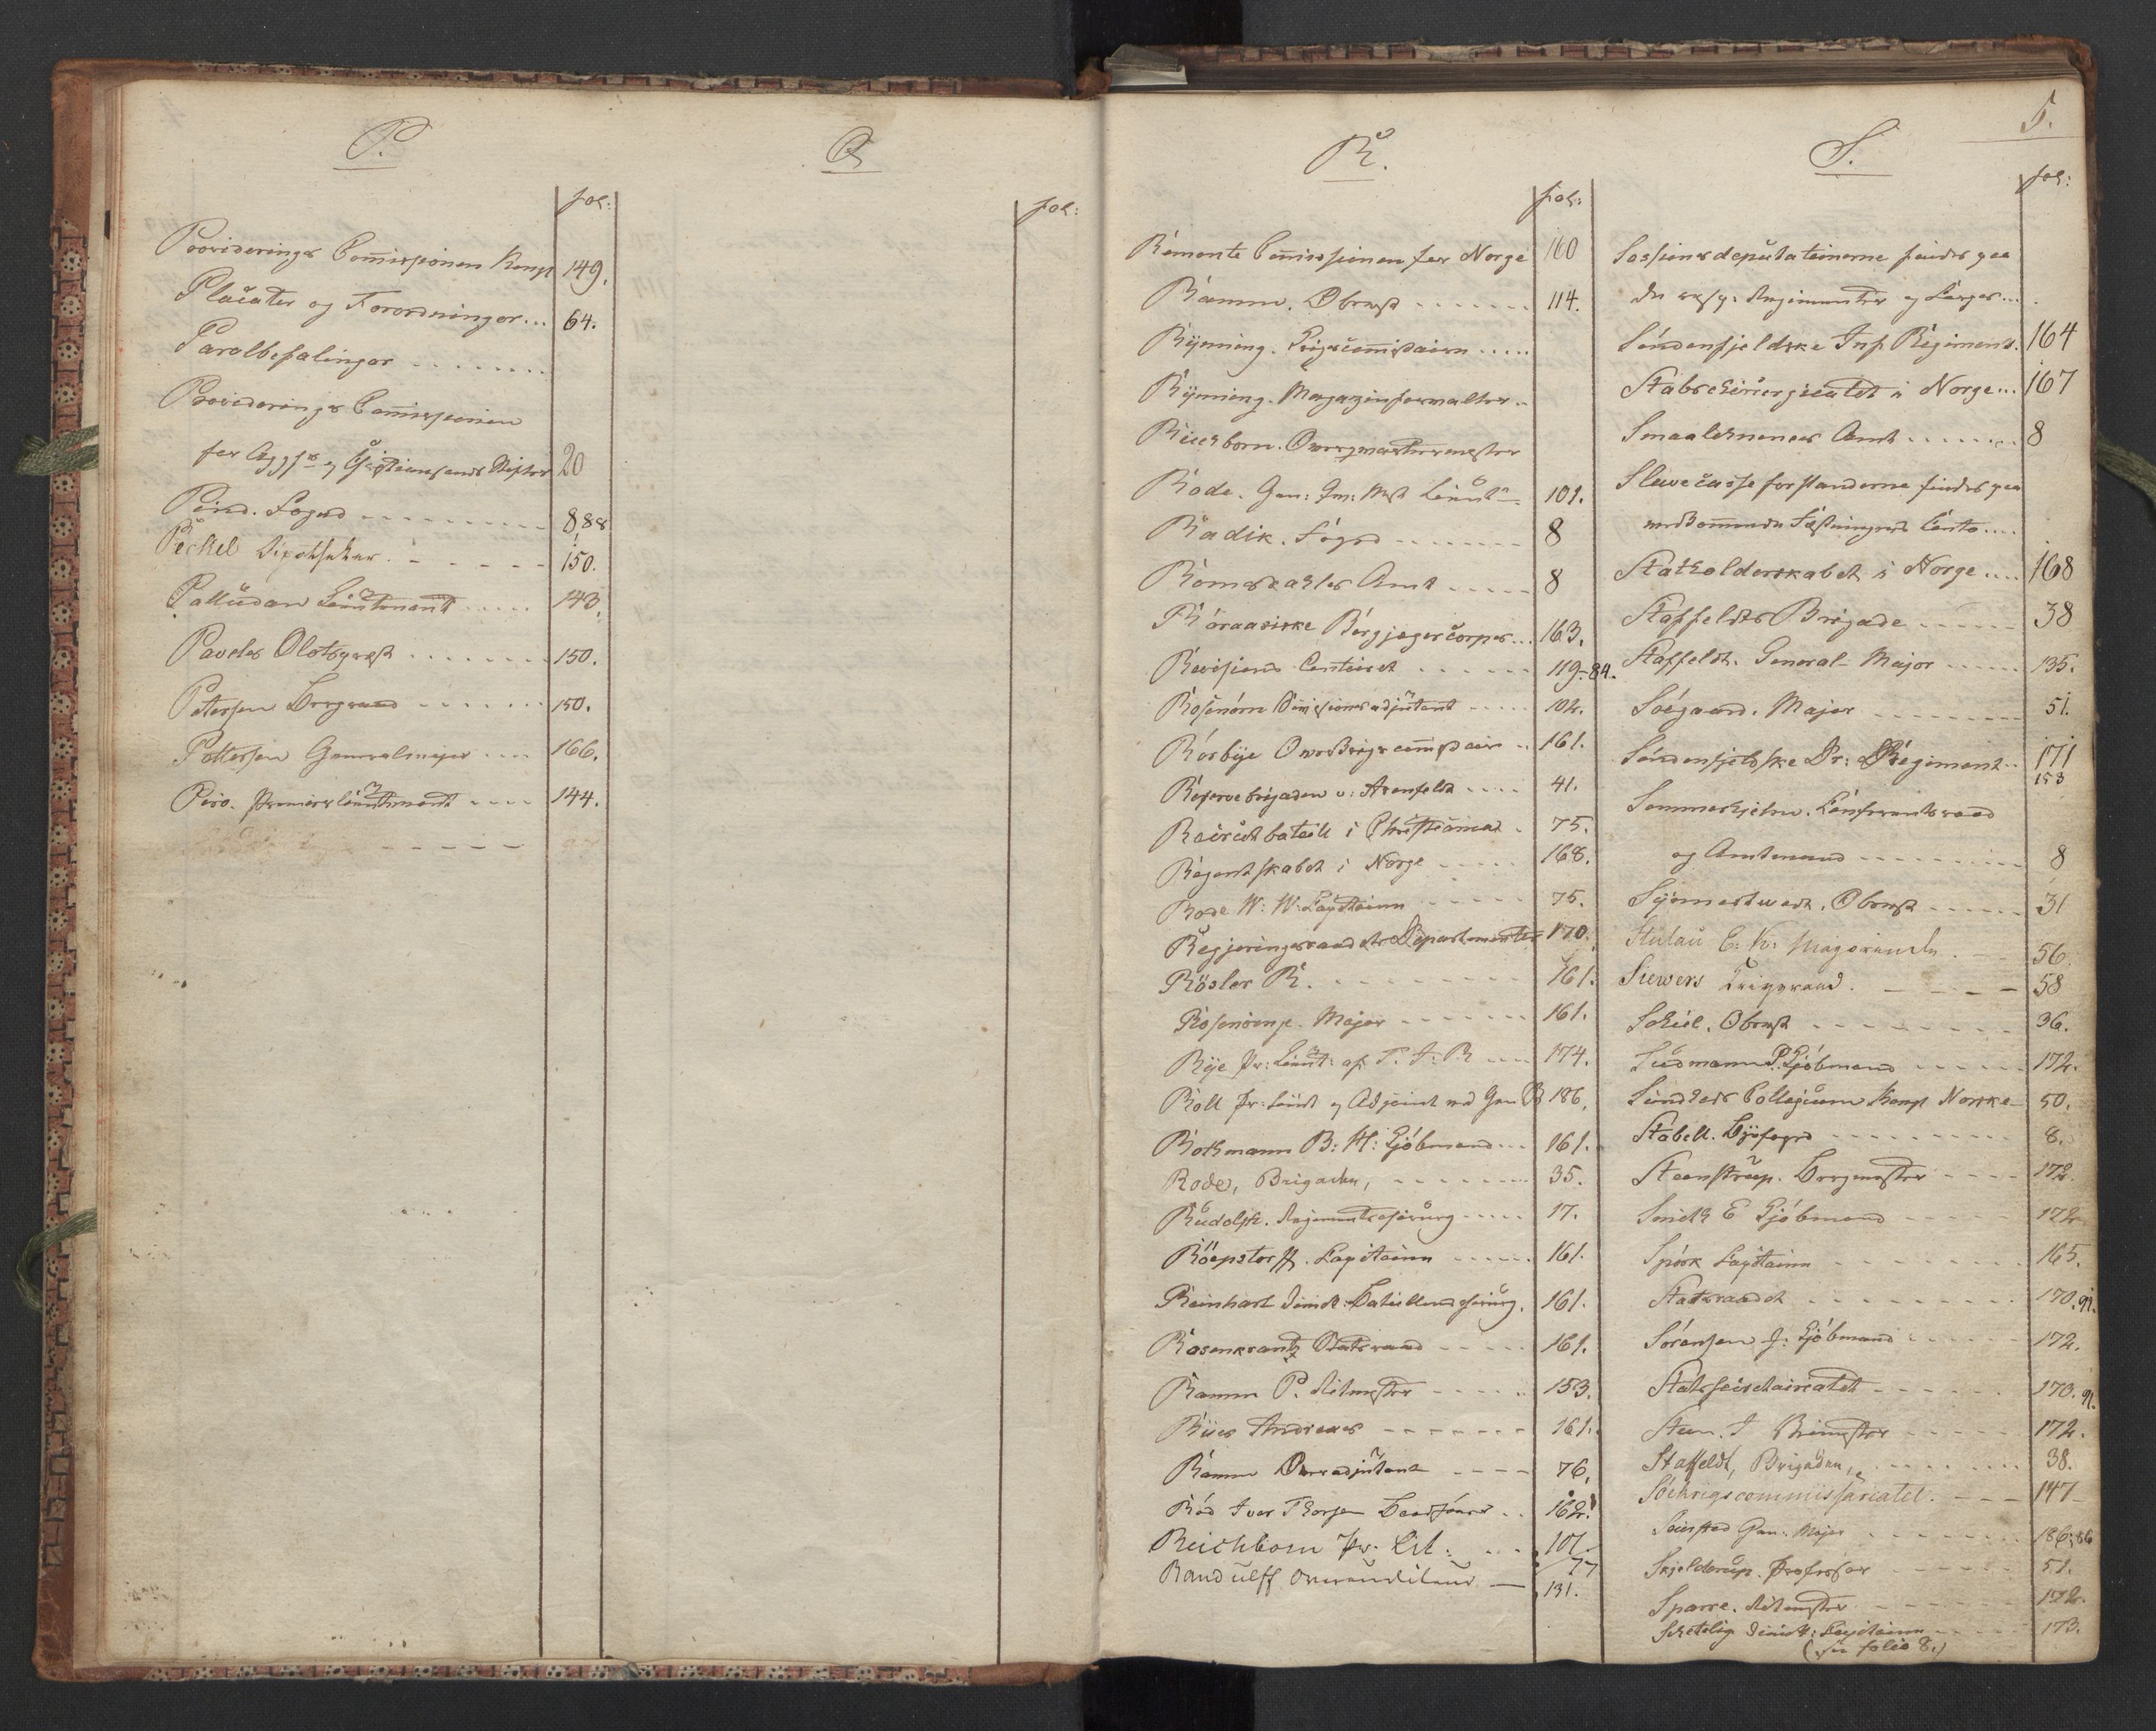 P.
fol:
Provideringer Com̄issionen Kongl 149.
Placater og Forordninger... 64.
Parolbefalinger ........
Providerings Com̄issionen
for Aggrs og Christiansands Stifter 20
Pind. Foged --------- 8,88
Peckel Apotheker. - - - - - 150.
Palludan Lieutenant ..... 143.
Pavels Slotspræst ........ 150.
Petersen Borger ------ 150.
Pettersen Generalmajor .... 166.
Piro. Premierlieutenant .... 144.
Q
fol:
R.
fol:
Remonte Com̄issionen for Norge 160
Ramm. Oberst ....... 114.
Rynning. Krigscom̄issair .....
Rynning. Magazinforvalter..
Reichborn. Overqvarteermester
Rode. Gen: Qm: Mst Lieutn 101.
Radik. Foged ------- 8
Romsdahls Amt ----- 8
Röraasiske Bergjægercorps... 163.
Revisions Contoiret ...... 119-84.
Rosenörn Divisionsadjutant ..... 102.
Rosbye Overkrigscom̄issair .. 161.
Reservebrigaden v: Arenfeldt .... 41.
Recrutbataill i Christiania . 75.
Regentskabet i Norge ..... 168.
Rode W: W: Capitainn ----- 75.
Regjeringsraadets Departementer 170.
Rösler R. -------- 161.
Rosenörn. Major ------- 161.
Rye Pr: Lieut: af T. I: R .... 174.
Roll Pr: Lieut og Adjoint ved Gen B 186.
Rothmann B: H: Kjöbmand... 161.
Rode, Brigaden, -------- 35.
Rudolph. Regimentschirurg ..... 17.
Röepstorff. Capitainn ...... 161.
Reinhart Divis: Bataillonschirurg. 161.
Rosenkrantz Statsraad ----- 161.
Ramm P. Ritmester ------ 153.
Ries Andreas ------- 161.
Ramm Overadjutant ---- 76.
Röd Iver Thorsen .. 162.
Reichborn Pr. Lit: ... 101.
77
Randulff Overauditeur — 131.
5.
S.
fol:
Sessionsdeputationerne findes paa
de resp: Regimenter og Corpser...
Söndenfjeldske Inf Regiment. 164
Stabschirurgicatet i Norge... 167
Smaalehnenes Amt ........ 8
Sluecasseforstanderne findes paa
vedkommende Fæstningers Conto....
Statholderskabet i Norge .... 168
Staffeldts Brigade ------ 38
Staffeldt. General-Major ------ 135.
Söegaard. Major -------- 51.
Söndenfjeldske Dr: Regiment.. 171
153
Sommerhjelm. Conferentsraad
og Amtmand ---------- 8
Synnestwedt, Oberst ------ 31
Stulau C: K: Majorinde. - - 56.
Siewers Krigsraad. - - - - 58
Schiel. Oberst -------- 36.
Sudmann P. Kjöbmand ------ 172.
Sundheds Collegium Kongl Norske- 50.
Stabell. Byefoged ---------- 8.
Steenstrup. Borgermester ---- 172.
Smith E Kjöbmand ----- 172
Spörk Capitainn -------- 165.
Statsraadet --------- 170.91.
Sörensen J: Kjöbmand ----- 172.
Statssecretariatet ------ 170.91.
Steen. J ----- 172.
Staffeldt, Brigaden, -------- 38.
Söekrigscommissariatet. - - - 147
Seiersted Gen: Major -------- 186.86
Skjelderup. Professor ------ 51.
Sparre. Ritmester -------- 172.
Schetelig Divis: Capitainn ----- 173.
(see folio 8.)